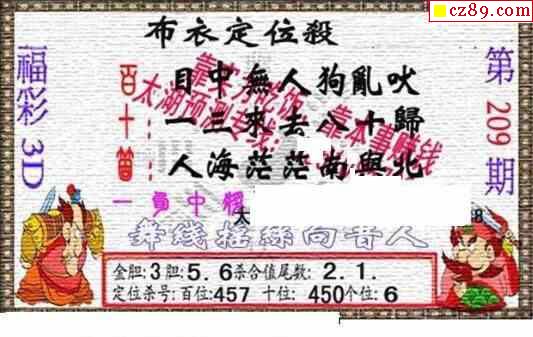 cz89.com
布衣定位殺
福彩3D
第209期
百 目中無人狗亂吠
十 一三來去八十歸
人海茫茫南與北
靠本事賺钱
太湖预测专线:
一負中
太 8
金胆:3胆:5.6杀合值尾数: 2.1.
定位杀号:百位:457 十位: 450个位:6